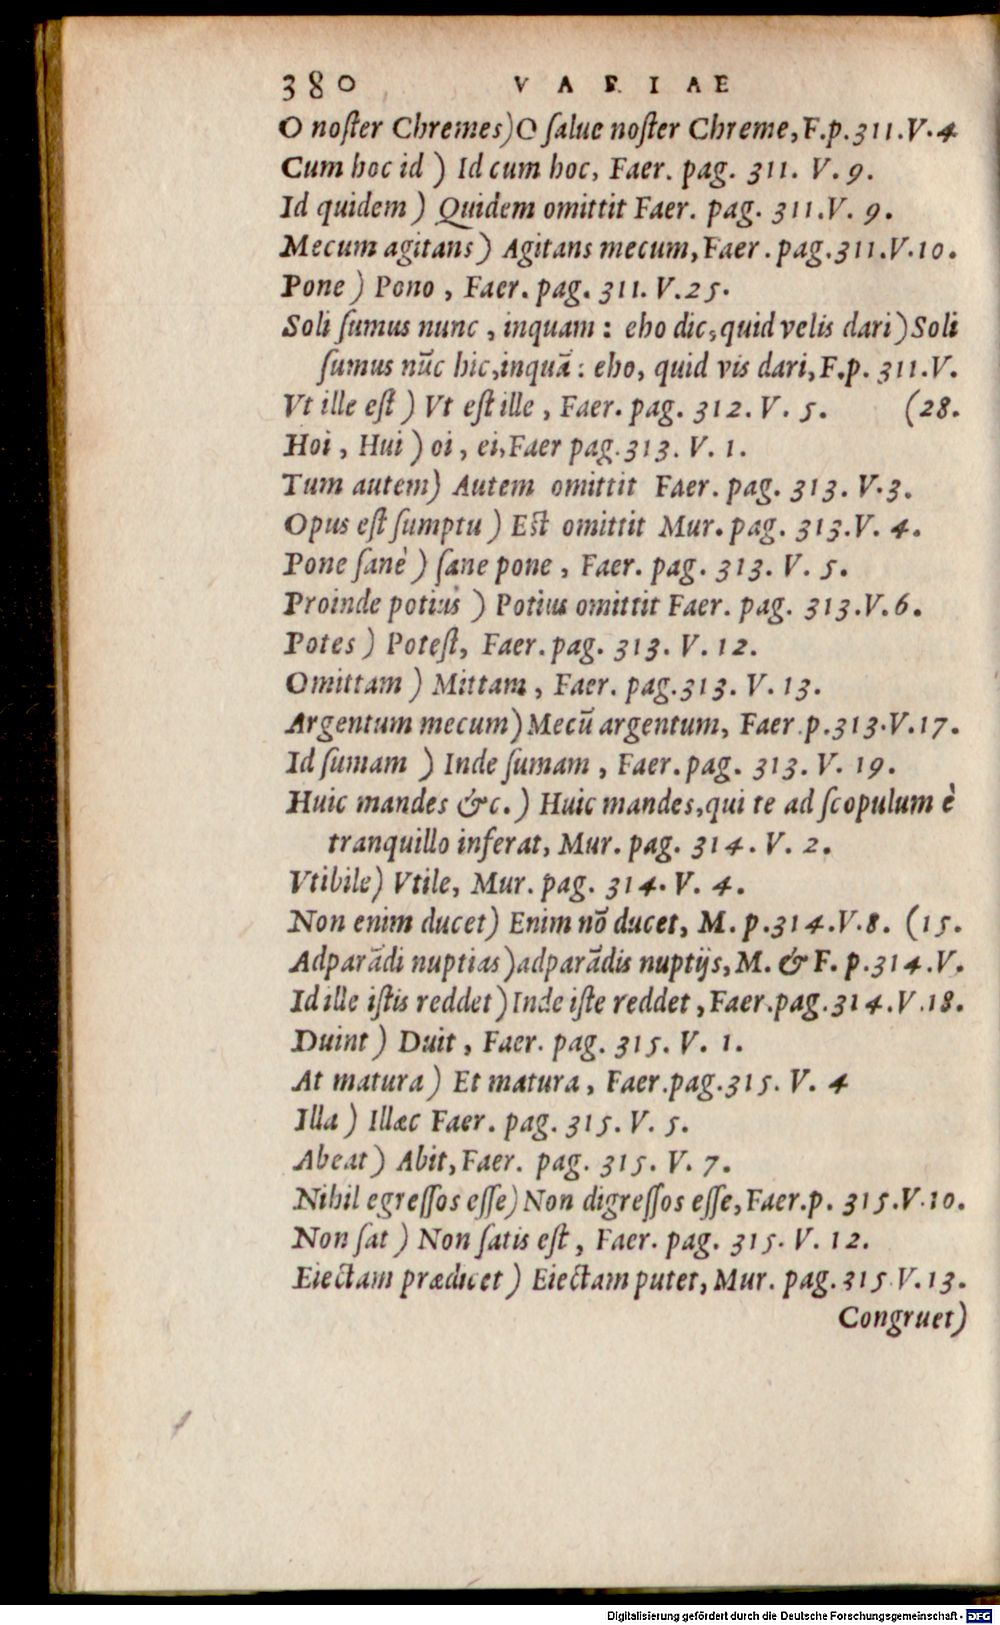 380 VARIAE
O noſter Chremes) O ſalue noſter Chreme, F.p.311.V.4
Cum hoc id ) Id cum hoc, Faer. pag. 311. V. 9.
Id quidem ) Quidem omittit Faer. pag. 311.V. 9.
Mecum agitans ) Agitans mecum, Faer. pag.311.V.10.
Pone ) Pono , Faer. pag. 311. V.25.
Soli ſumus nunc , inquam : eho dic, quid velis dari) Soli
ſumus nūc hic, inquā : eho, quid vis dari, F.p. 311.V.
Vt ille eſt ) Vt eſt ille , Faer. pag. 312. V. 5. (28.
Hoi , Hui ) oi , ei, Faer pag. 313. V. 1.
Tum autem) Autem omittit Faer. pag. 313. V.3.
Opus eſt ſumptu ) Eſt omittit Mur. pag. 313.V. 4.
Pone ſanè ) ſane pone , Faer. pag. 313. V. 5.
Proinde potius ) Potius omittit Faer. pag. 313.V.6.
Potes ) Poteſt, Faer. pag. 313. V. 12.
Omittam ) Mittam , Faer. pag.313. V. 13.
Argentum mecum) Mecū argentum, Faer. p.313.V.17.
Id ſumam ) Inde ſumam , Faer. pag. 313. V. 19.
Huic mandes &c. ) Huic mandes, qui te ad ſcopulum è
tranquillo inferat, Mur. pag. 314. V. 2.
Vtibile) Vtile, Mur. pag. 314. V. 4.
Non enim ducet) Enim nō ducet, M. p.314.V.8. (15.
Adparādi nuptias) adparādis nuptijs, M. & F. p.314.V.
Id ille iſtis reddet ) Inde iſte reddet , Faer.pag.314.V.18.
Duint ) Duit , Faer. pag. 315. V. 1.
At matura ) Et matura , Faer.pag.315. V. 4
Illa ) Illæc Faer. pag. 315. V. 5.
Abeat ) Abit, Faer. pag. 315. V. 7.
Nihil egreſſos eſſe) Non digreſſos eſſe, Faer.p. 315.V.10.
Non ſat ) Non ſatis eſt , Faer. pag. 315. V. 12.
Eiectam prædicet ) Eiectam putet, Mur. pag. 315.V.13.
Congruet)
Digitalisierung gefördert durch die Deutsche Forschungsgemeinschaft - DFG